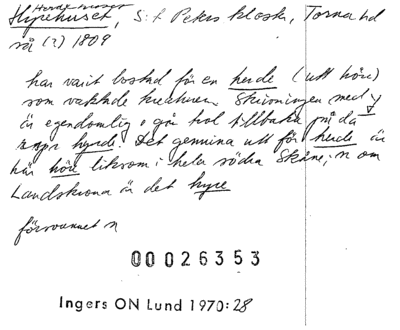 Hyrehuset, S:t Peters kloster, Torna hd
så (?) 1809
har varit bostad för en herde (utt höre)
som vaktade kreaturen. Skrivningen med y
är egendomlig o går tillbaka på då
hyrde. Det genuina utt för herde är
här höre liksom i hela södra Skåne; n om
Landskrona är det hyre
försvunnet n
00026353
Ingers ON Lund 1970:28